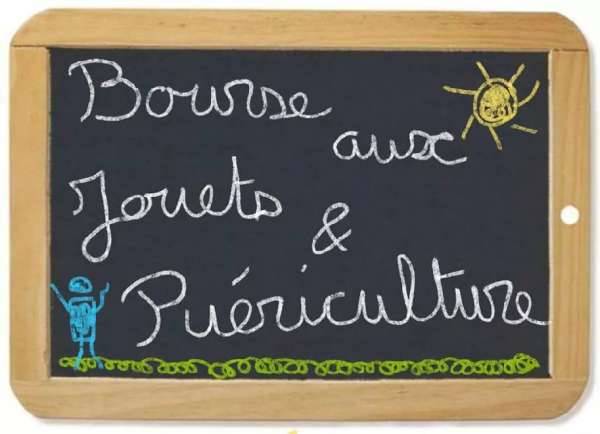 Bourse
aux
Jouets
&
Puériculture